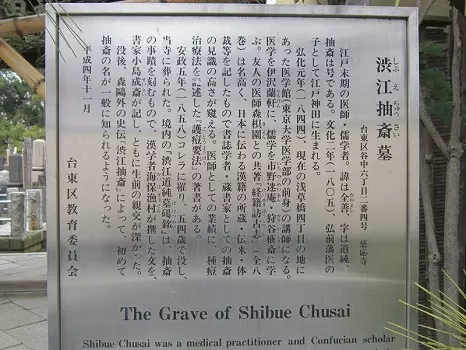 渋江抽斎墓
しぶえちゅうさい
台東区谷中六丁目二番四号 感応寺
江戸末期の医師・儒学者。諱は全善、字は道純、
抽斎は号である。文化二年(一八〇五)、弘前藩医の
子として江戸神田に生まれる。
弘化元年(一八四四)、現在の浅草橋四丁目の地に
あった医学館(東京大学医学部の前身)の講師になる。
医学を伊沢蘭軒に、儒学を市野迷庵、狩谷棭斎に学
ぶ。友人の医師森枳園との共著『経籍訪古志』(全八
巻)は名高く、日本に伝わる漢籍の所蔵・伝来・体
裁等を記したもので書誌学者・蔵書家としての抽斎
の見識の高さが窺える。医師としての業績に、種痘
治療法を記述した『護痘要法』の著書がある。
安政五年(一八五八)コレラに罹り、五四歳で没し、
当寺に葬られた。境内の「渋江道純墓碣銘」は、抽斎
の事蹟を刻むもので、漢学者海保漁村が撰した文を、
書家小島成斎が記し、ともに生前の親交が深かった。
没後、森鷗外の史伝『渋江抽斎』によって、初めて
抽斎の名が一般に知られるようになった。
平成四年十一月
台東区教育委員会
The Grave of Shibue Chusai
Shibue Chusai was a medical practitioner and Confucian scholar